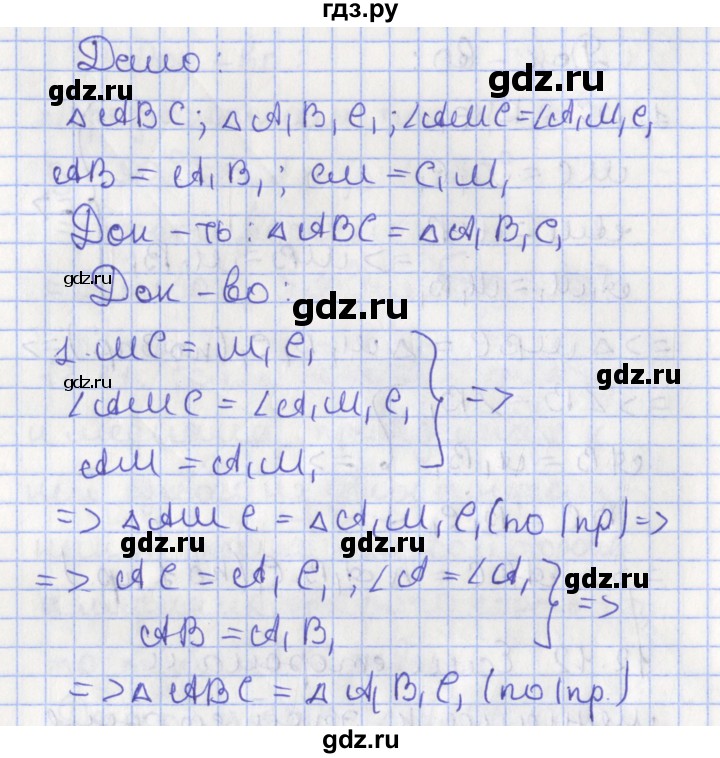 гдз.ру
Дано:
gdz.ru
gdz.ru
△ABC; △A₁B₁C₁; ∠AMC = ∠A₁M₁C₁
AB = A₁B₁; CM = C₁M₁
Док-ть: △ABC = △A₁B₁C₁
gdz.ru
Док-во:
gdz.ru
1. MC = M₁C₁
gdz.ru
gdz.ru
∠AMC = ∠A₁M₁C₁ } =>
AM = A₁M₁
=> △AMC = △A₁M₁C₁ (по I пр) =>
gdz.ru
gdz.ru
=> AC = A₁C₁; ∠A = ∠A₁
gdz.ru
AB = A₁B₁ } =>
=> △ABC = △A₁B₁C₁ (по I пр.)
gdz.ru